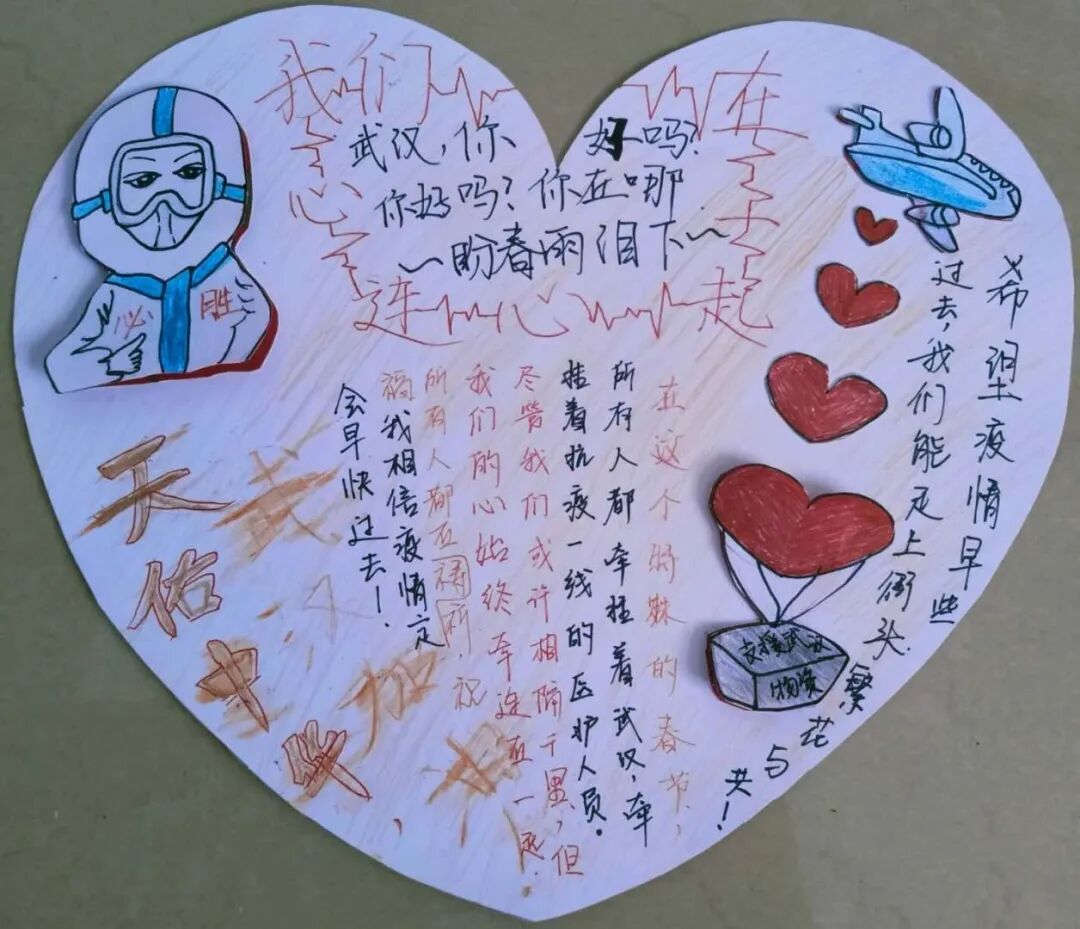 我们 在
心
连心 起
武汉，你 好吗？
你好吗？你在哪
~盼春雨泪下~
必 胜
希望疫情早些
过去，我们能走上街头
繁花与共！
支援武汉
物资
在这个特殊的春节，
所有人都牵挂着武汉，牵
挂着抗疫一线的医护人员。
尽管我们或许相隔千里，但
我们的心始终牵连在一起.
所有人都在祷祈，祝
福，我相信疫情定
会早快过去！
武 加
天佑中华，